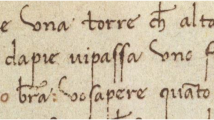 e una torre ch̃ alto
dapie uipassa uno f
o br̃a: uosapere quãto